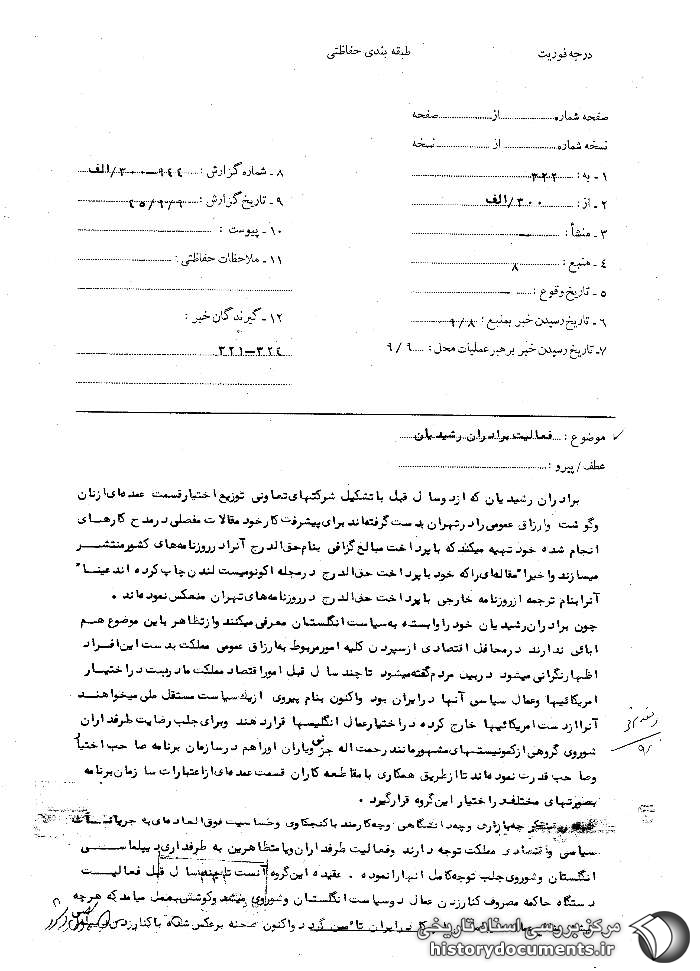 درجه فوریت
طبقه بندی حفاظتی
صفحه شماره از صفحه
نسخه شماره از نسخه
۱ - به : ۳۲۲
۲ - از : ۳۰۰/الف
۳ - منشأ : —
۴ - منبع : ۸
۵ - تاریخ وقوع : —
۶ - تاریخ رسیدن خبر بمنبع : ۹/۸
۷ - تاریخ رسیدن خبر برهبر عملیات محل : ۹/۹
۸ - شماره گزارش : ۹۴۴-۳۰۰/الف
۹ - تاریخ گزارش : ۴۵/۹/۹
۱۰ - پیوست :
۱۱ - ملاحظات حفاظتی :
۱۲ - گیرندگان خبر :
۳۲۱-۳۲۴
موضوع : فعالیت برادران رشیدیان
عطف / پیرو :
برادران رشیدیان که از دو سال قبل با تشکیل شرکتهای تعاونی توزیع اختیار قسمت عمده‌ای از نان
و گوشت و ارزاق عمومی را در تهران بدست گرفته‌اند برای پیشرفت کار خود مقالات مفصلی در مدح کارهای
انجام شده خود تهیه میکند که با پرداخت مبالغ گزافی بنام حق الدرج آنرا در روزنامه‌های کشور منتشر
میسازند و اخیرا" مقاله‌ای را که خود با پرداخت حق الدرج در مجله اکونومیست لندن چاپ کرده اند عینا"
آنرا بنام ترجمه از روزنامه خارجی با پرداخت حق الدرج در روزنامه‌های تهران منعکس نموده‌اند .
چون برادران رشیدیان خود را وابسته به سیاست انگلستان معرفی میکنند و از تظاهر باین موضوع هم
ابائی ندارند در محافل اقتصادی از سپردن کلیه امور مربوط به ارزاق عمومی مملکت بدست این افراد
اظهار نگرانی میشود در بین مردم گفته میشود تا چند سال قبل امور اقتصاد مملکت ما دربست در اختیار
امریکائیها و عمال سیاسی آنها در ایران بود و اکنون بنام پیروی از یک سیاست مستقل ملی میخواهند
آنرا از دست امریکائیها خارج کرده در اختیار عمال انگلیسها قرار دهند و برای جلب رضایت طرفداران
شوروی گروهی از کمونیستهای مشهور مانند رحمت اله جزنی و یاران او را هم در سازمان برنامه صاحب اختیار
و صاحب قدرت نموده‌اند تا از طریق همکاری با مقاطعه کاران قسمت عمده‌ای از اعتبارات سازمان برنامه
بصورتهای مختلف در اختیار این گروه قرار گیرد .
چه بازاری و چه دانشگاهی و چه کارمند با کنجکاوی و حساسیت فوق العاده‌ای به جریانات
سیاسی و اقتصادی مملکت توجه دارند و فعالیت طرفداران و یا متظاهرین به طرفداری دیپلماسی
انگلستان و شوروی جلب توجه کامل آنها را نموده . عقیده این گروه آنست تا چند سال قبل فعالیت
دستگاه حاکمه مصروف کنار زدن عمال دو سیاست انگلستان و شوروی میشد و کوشش بعمل میامد که هرچه
ایران تامین گردد و اکنون صحنه برعکس شده با کنار زدن
مرکز بررسی اسناد تاریخی
historydocuments.ir